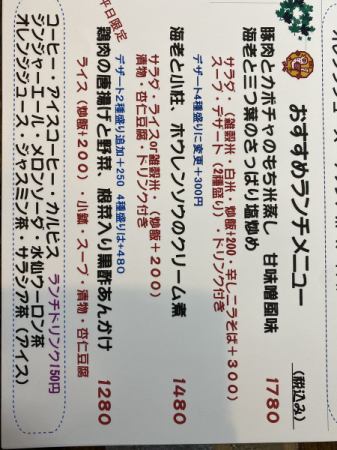 おすすめランチメニュー
(税込み)
豚肉とカボチャのもち米蒸し 甘味噌風味
海老と三つ葉のさっぱり塩炒め 1780
サラダ・(雑穀米・白米・炒飯+200・辛しニラそば+300)
スープ・デザート(2種盛り)・ドリンク付き
デザート4種盛りに変更+300円
海老と小柱、ホウレンソウのクリーム煮 1480
サラダ・ライスor雑穀米・(炒飯+200)
漬物・杏仁豆腐・ドリンク付き
デザート2種盛り追加+250 4種盛りは+480
平日限定
鶏肉の唐揚げと野菜、根菜入り黒酢あんかけ 1280
ライス(炒飯+200)・小鉢・スープ・漬物・杏仁豆腐
ランチドリンク150円
コーヒー・アイスコーヒー・カルピス
ジンジャーエール・メロンソーダ・水仙ウーロン茶
オレンジジュース・ジャスミン茶・サラシア茶(アイス)